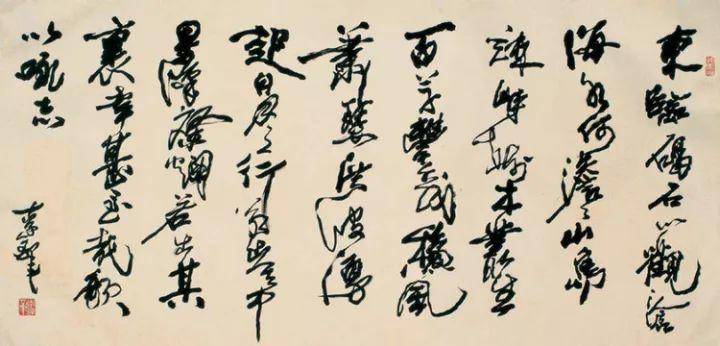 東臨碣石以觀滄
海水何澹〻山島
竦峙樹木叢生
百草豐茂秋風
蕭瑟洪波湧
起日月之行若出其中
星漢燦爛若出其
裏幸甚至哉歌
以詠志
李